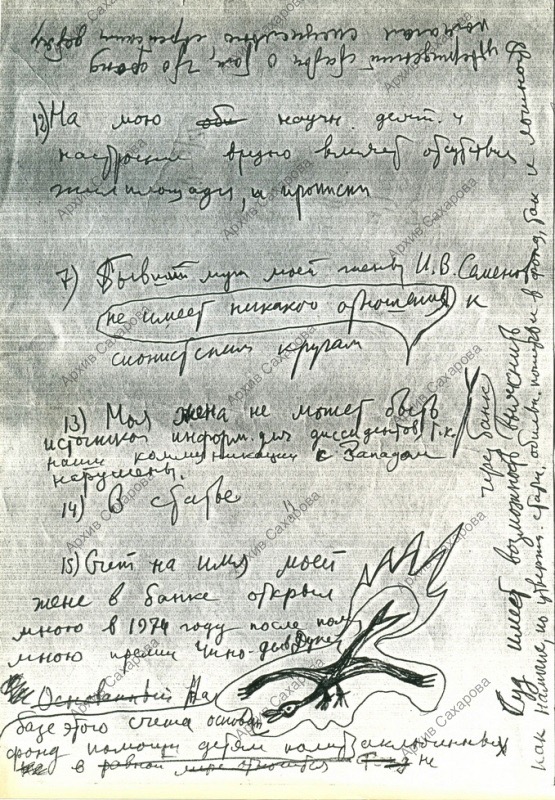 утверждений статьи о том, что фонд
помогал специально
12) На мою научн. деят. и
настроении вредно влияет отсутствие
жил площади, и прописки
7) Бывший муж моей жены И.В. Семенов
не имеет никакого отношения к
сионистским кругам
13) Моя жена не может быть
источником информ. для диссидентов, т.к.
наши коммуникации с Западом
нарушены.
14) В статье "
15) Счет на имя моей
жене в банке открыл
мною в 1974 году после пол
мною премии Чино-дель Дука
Основанный На
базе этого счета основан
фонд помощи детям полит заключенных
в равной мере относится не
Суд имеет возможность выяснить
через банк
как наличие, по утвержд. статьи, обильных в фонд, так и
Архив Сахарова